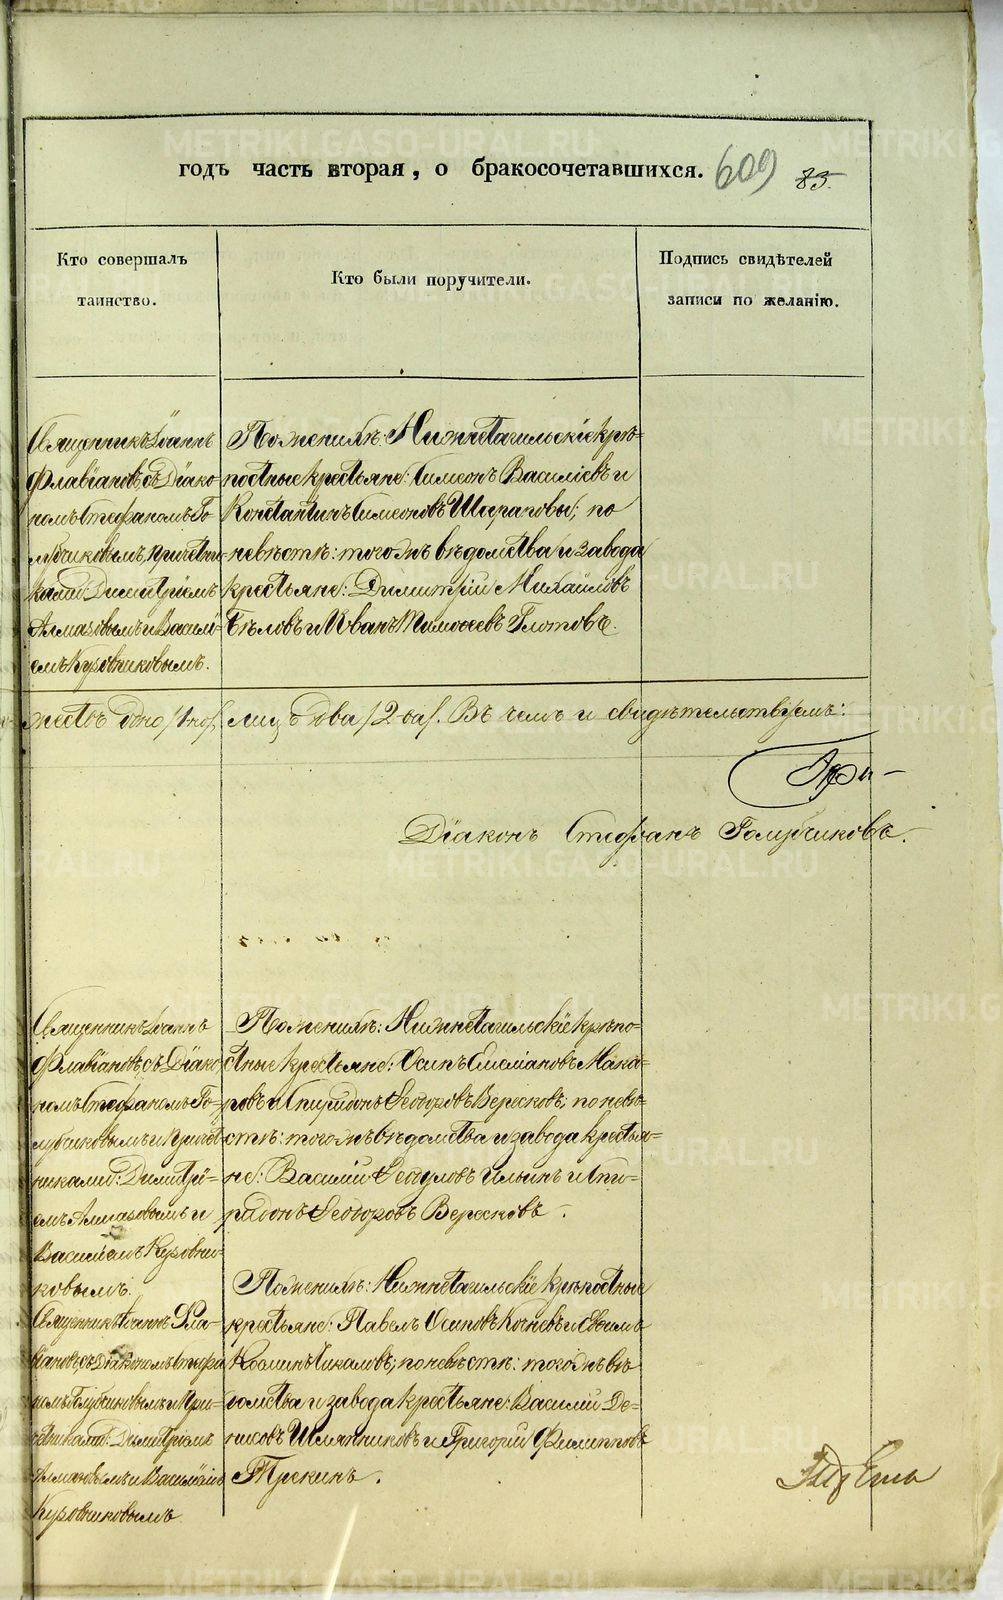 годъ часть вторая, о бракосочетавшихся. 609 85.
Кто совершалъ
таинство.
Кто были поручители.
Подпись свидѣтелей
записи по желанію.
Священникъ Іоаннъ
Флавіановъ съ Діако-
номъ Стефаномъ Го-
лубчиковымъ, причетни-
ками: Димитріемъ
Алмазовымъ и Васили-
емъ Кузовниковымъ.
По женихѣ: Нижнетагильскіе крѣ-
постные крестьяне: Симеонъ Василіевъ и
Константинъ Симеоновъ Шараповы; по
невѣстѣ: тогожъ вѣдомства и завода
крестьяне: Димитрій Михайловъ
Бѣловъ и Иванъ Тимоѳеевъ Глотовъ.
жествъ одно /1-но/, лицъ два /2-ва/. Въ чемъ и свидѣтельствуемъ:
При-
Діаконъ Стефанъ Голубчиковъ.
Священникъ Іоаннъ
Флавіановъ съ Діако-
номъ Стефаномъ Го-
лубчиковымъ и Причет-
никами: Димитрі-
емъ Алмазовымъ и
Василіемъ Кузовни-
ковымъ.
По женихѣ: Нижнетагильскіе крѣпо-
стные крестьяне: Осипъ Емеліановъ Мака-
ровъ и Спиридонъ Ѳеодоровъ Вересковъ; по невѣ-
стѣ: тогожъ вѣдомства и завода крестья-
не: Василій Ѳеодуловъ Ильинъ и Спи-
ридонъ Ѳеодоровъ Вересковъ.
Священникъ Іоаннъ Фла-
віановъ, съ Діакономъ Стефа-
номъ Голубчиковымъ и При-
четниками: Димитріемъ
Алмазовымъ и Василіемъ
Кузовниковымъ
По женихѣ: Нижнетагильскіе крѣпостные
крестьяне: Павелъ Осиповъ Кочневъ и
Козминъ Чикаловъ; по невѣстѣ: тогожъ вѣ-
домства и завода крестьяне: Василій Де-
нисовъ Шляпниковъ и Григорій Филипповъ
Трекинъ.